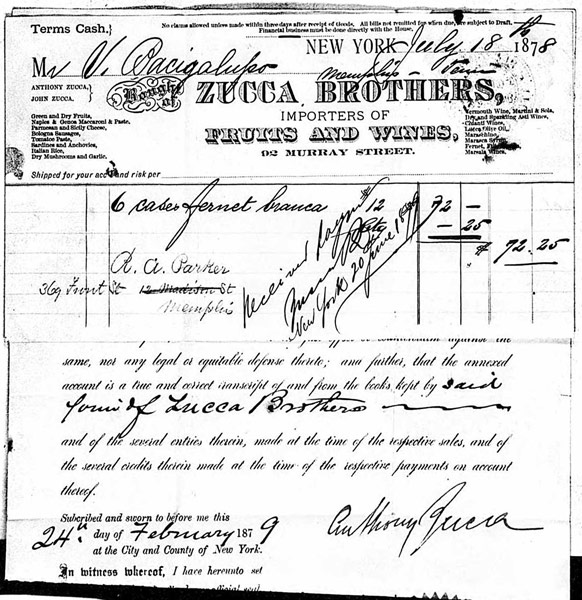 Terms Cash.}
No claims allowed unless made within three days after receipt of Goods. All bills not remitted for when due, are subject to Draft.
Financial business must be done directly with the House.
NEW YORK July 18th 1878
Mr V. Bacigalupo
Memphis - Tenn
ANTHONY ZUCCA,
JOHN ZUCCA.
Bought of ZUCCA BROTHERS,
IMPORTERS OF
FRUITS AND WINES,
92 MURRAY STREET.
Green and Dry Fruits,
Naples & Genoa Maccaroni & Paste,
Parmesan and Sicily Cheese,
Bologna Sausages,
Tomatoe Paste,
Sardines and Anchovies,
Italian Rice,
Dry Mushrooms and Garlic.
Vermouth Wine, Martini & Sola,
Dry and Sparkling Asti Wines,
Chianti Wines,
Lucca Olive Oil,
Maraschino,
Fernet,
Marsala Wines.
Shipped for your acc and risk per
6 cases fernet branca 12 72 —
— 25
$ 72.25
R. A. Parker
369 Front St 12 Madison St
Memphis
received payment
New York 20 June
same, nor any legal or equitable defense thereto; and further, that the annexed
account is a true and correct transcript of and from the books kept by said
firm of Zucca Brothers
and of the several entries therein, made at the time of the respective sales, and of
the several credits therein made at the time of the respective payments on account
thereof.
Subcribed and sworn to before me this
24th day of February 1879
at the City and County of New York.
Anthony Zucca
In witness whereof, I have hereunto set